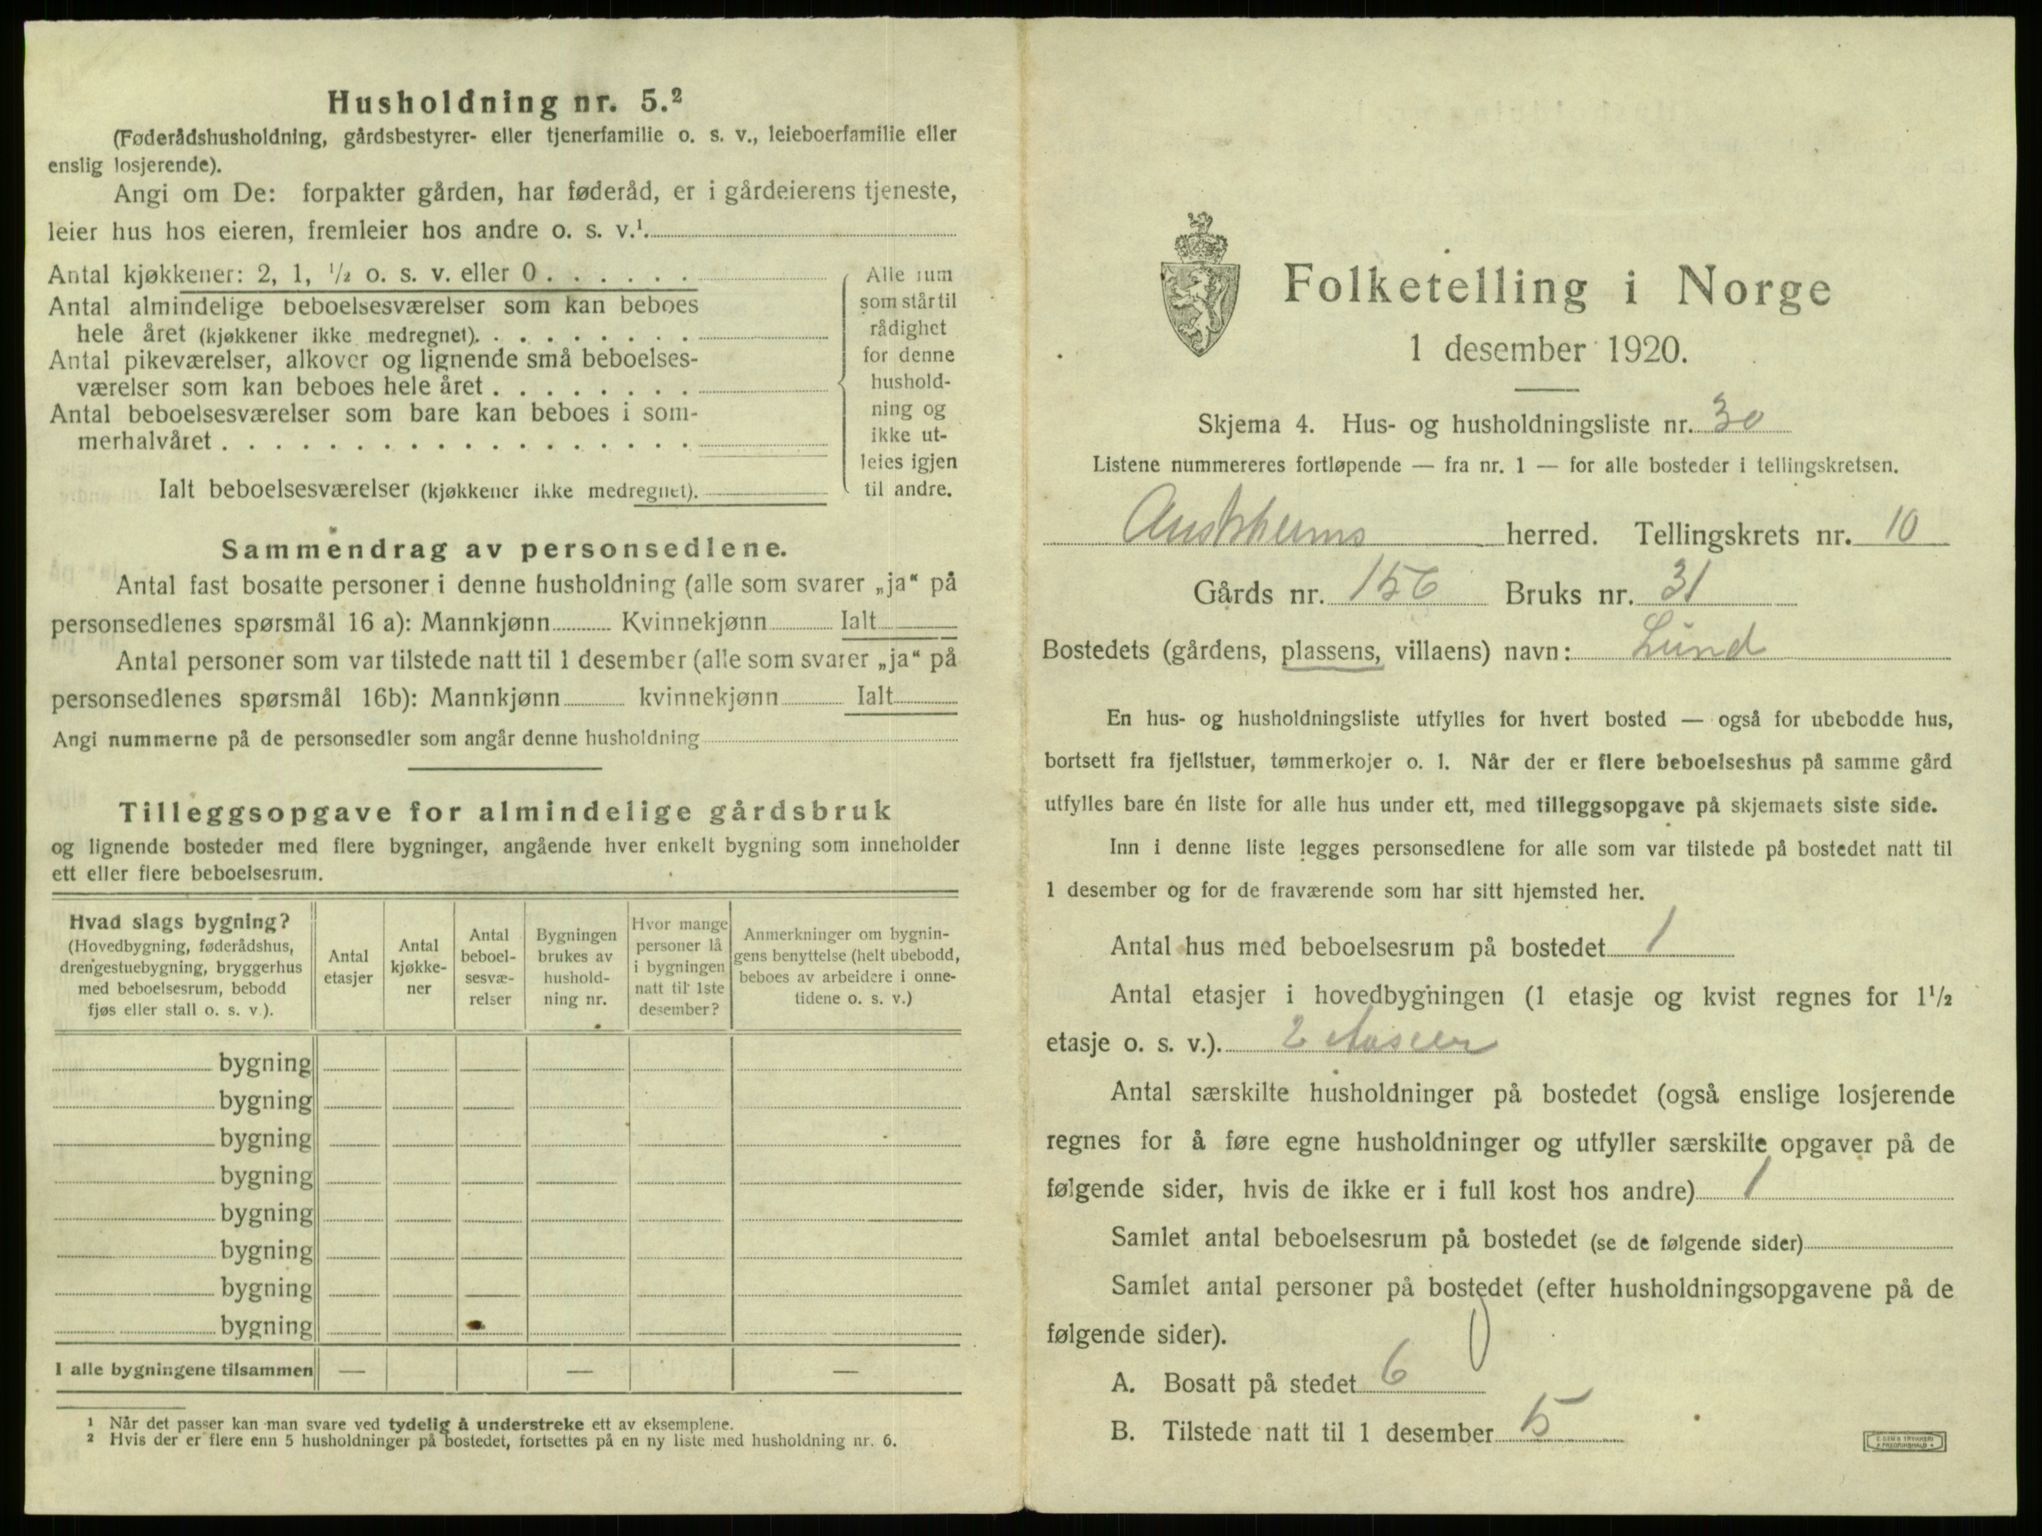 Husholdning nr. 5.²
(Føderådshusholdning, gårdsbestyrer- eller tjenerfamilie o. s. v., leieboerfamilie eller
enslig losjerende).
Angi om De: forpakter gården, har føderåd, er i gårdeierens tjeneste,
leier hus hos eieren, fremleier hos andre o. s. v.¹
Antal kjøkkener: 2, 1, ½ o. s. v. eller 0 . . . . . .
Antal almindelige beboelsesværelser som kan beboes
hele året (kjøkkener ikke medregnet). . . . . . . . .
Antal pikeværelser, alkover og lignende små beboelses-
værelser som kan beboes hele året . . . . . . . .
Antal beboelsesværelser som bare kan beboes i som-
merhalvåret . . . . . . . . . . . . . . . . . .
Ialt beboelsesværelser (kjøkkener ikke medregnet).
Alle rum
som står til
rådighet
for denne
hushold-
ning og
ikke ut-
leies igjen
til andre.
Sammendrag av personsedlene.
Antal fast bosatte personer i denne husholdning (alle som svarer „ja“ på
personsedlenes spørsmål 16 a): Mannkjønn Kvinnekjønn Ialt
Antal personer som var tilstede natt til 1 desember (alle som svarer „ja“ på
personsedlenes spørsmål 16b): Mannkjønn kvinnekjønn Ialt
Angi nummerne på de personsedler som angår denne husholdning
Tilleggsopgave for almindelige gårdsbruk
og lignende bosteder med flere bygninger, angående hver enkelt bygning som inneholder
ett eller flere beboelsesrum.
Hvad slags bygning?
(Hovedbygning, føderådshus,
drengestuebygning, bryggerhus
med beboelsesrum, bebodd
fjøs eller stall o. s. v.).
Antal
etasjer
Antal
kjøkke-
ner
Antal
beboel-
sesvæ-
relser
Bygningen
brukes av
hushold-
ning nr.
Hvor mange
personer lå
i bygningen
natt til 1ste
desember?
Anmerkninger om bygnin-
gens benyttelse (helt ubebodd,
beboes av arbeidere i onne-
tidene o. s. v.)
bygning
bygning
bygning
bygning
bygning
bygning
bygning
bygning
I alle bygningene tilsammen — — —
¹ Når det passer kan man svare ved tydelig å understreke ett av eksemplene.
² Hvis der er flere enn 5 husholdninger på bostedet, fortsettes på en ny liste med husholdning nr. 6.
Folketelling i Norge
1 desember 1920.
Skjema 4. Hus- og husholdningsliste nr. 30
Listene nummereres fortløpende — fra nr. 1 — for alle bosteder i tellingskretsen.
Austrheims herred. Tellingskrets nr. 10
Gårds nr. 156 Bruks nr. 31
Bostedets (gårdens, plassens, villaens) navn: Lund
En hus- og husholdningsliste utfylles for hvert bosted — også for ubebodde hus,
bortsett fra fjellstuer, tømmerkojer o. l. Når der er flere beboelseshus på samme gård
utfylles bare én liste for alle hus under ett, med tilleggsopgave på skjemaets siste side.
Inn i denne liste legges personsedlene for alle som var tilstede på bostedet natt til
1 desember og for de fraværende som har sitt hjemsted her.
Antal hus med beboelsesrum på bostedet 1
Antal etasjer i hovedbygningen (1 etasje og kvist regnes for 1½
etasje o. s. v.). 2
Antal særskilte husholdninger på bostedet (også enslige losjerende
regnes for å føre egne husholdninger og utfyller særskilte opgaver på de
følgende sider, hvis de ikke er i full kost hos andre) 1
Samlet antal beboelsesrum på bostedet (se de følgende sider)
Samlet antal personer på bostedet (efter husholdningsopgavene på de
følgende sider).
A. Bosatt på stedet 6
B. Tilstede natt til 1 desember 5